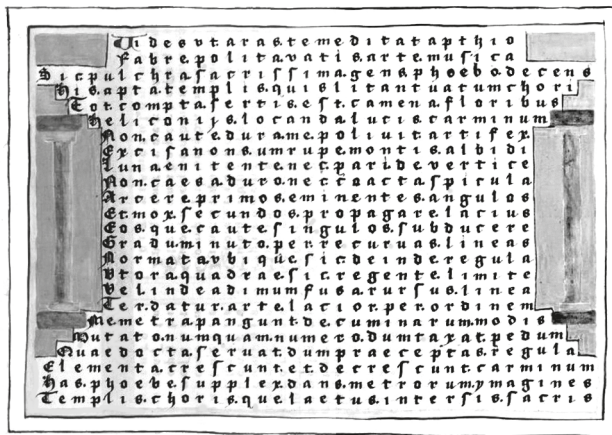 Videsvtaras.temeditatapthio
Fabre.politavati.sarte.musica
Sicpulchrasacrissima.gens.phoebo.decens
His.apta.templis.quislitantuatumchori
Tot.compta.sertis.est.camena.floribus
Heliconijs.locandalucis.carminum
Non.caute.dura.me.poliuit.artifex.
Excisanons.umrupe.montis.albidi
Lunaenitente.nec.pari.devertice
Non.caesaduro.neccoactaspicula
Arcere.primos.eminentes.angulos
Et.mox.secundos.propagarelacius
Eos.quecautesingulos.subducere
Graduminuto.per.recuruas.lineas
Normatavbiquesic.deinderegula
Vtoraquadraesic.regente.limite
Velindeadimumfusarursus.linea
Ter.datur.artelacior.per.ordinem
Memetrapangunt.decuminarum.modis
Mutatonumquam.numero.dumtaxat.pedum
Quaedocta.seruat.dumpraeceptas.regula
Elementa.crescunt.et.decrescunt.carminum
Has.phoebe.supplexdans.metrorum.ymagines
Templis.choris.quelaetus.intersis.sacris